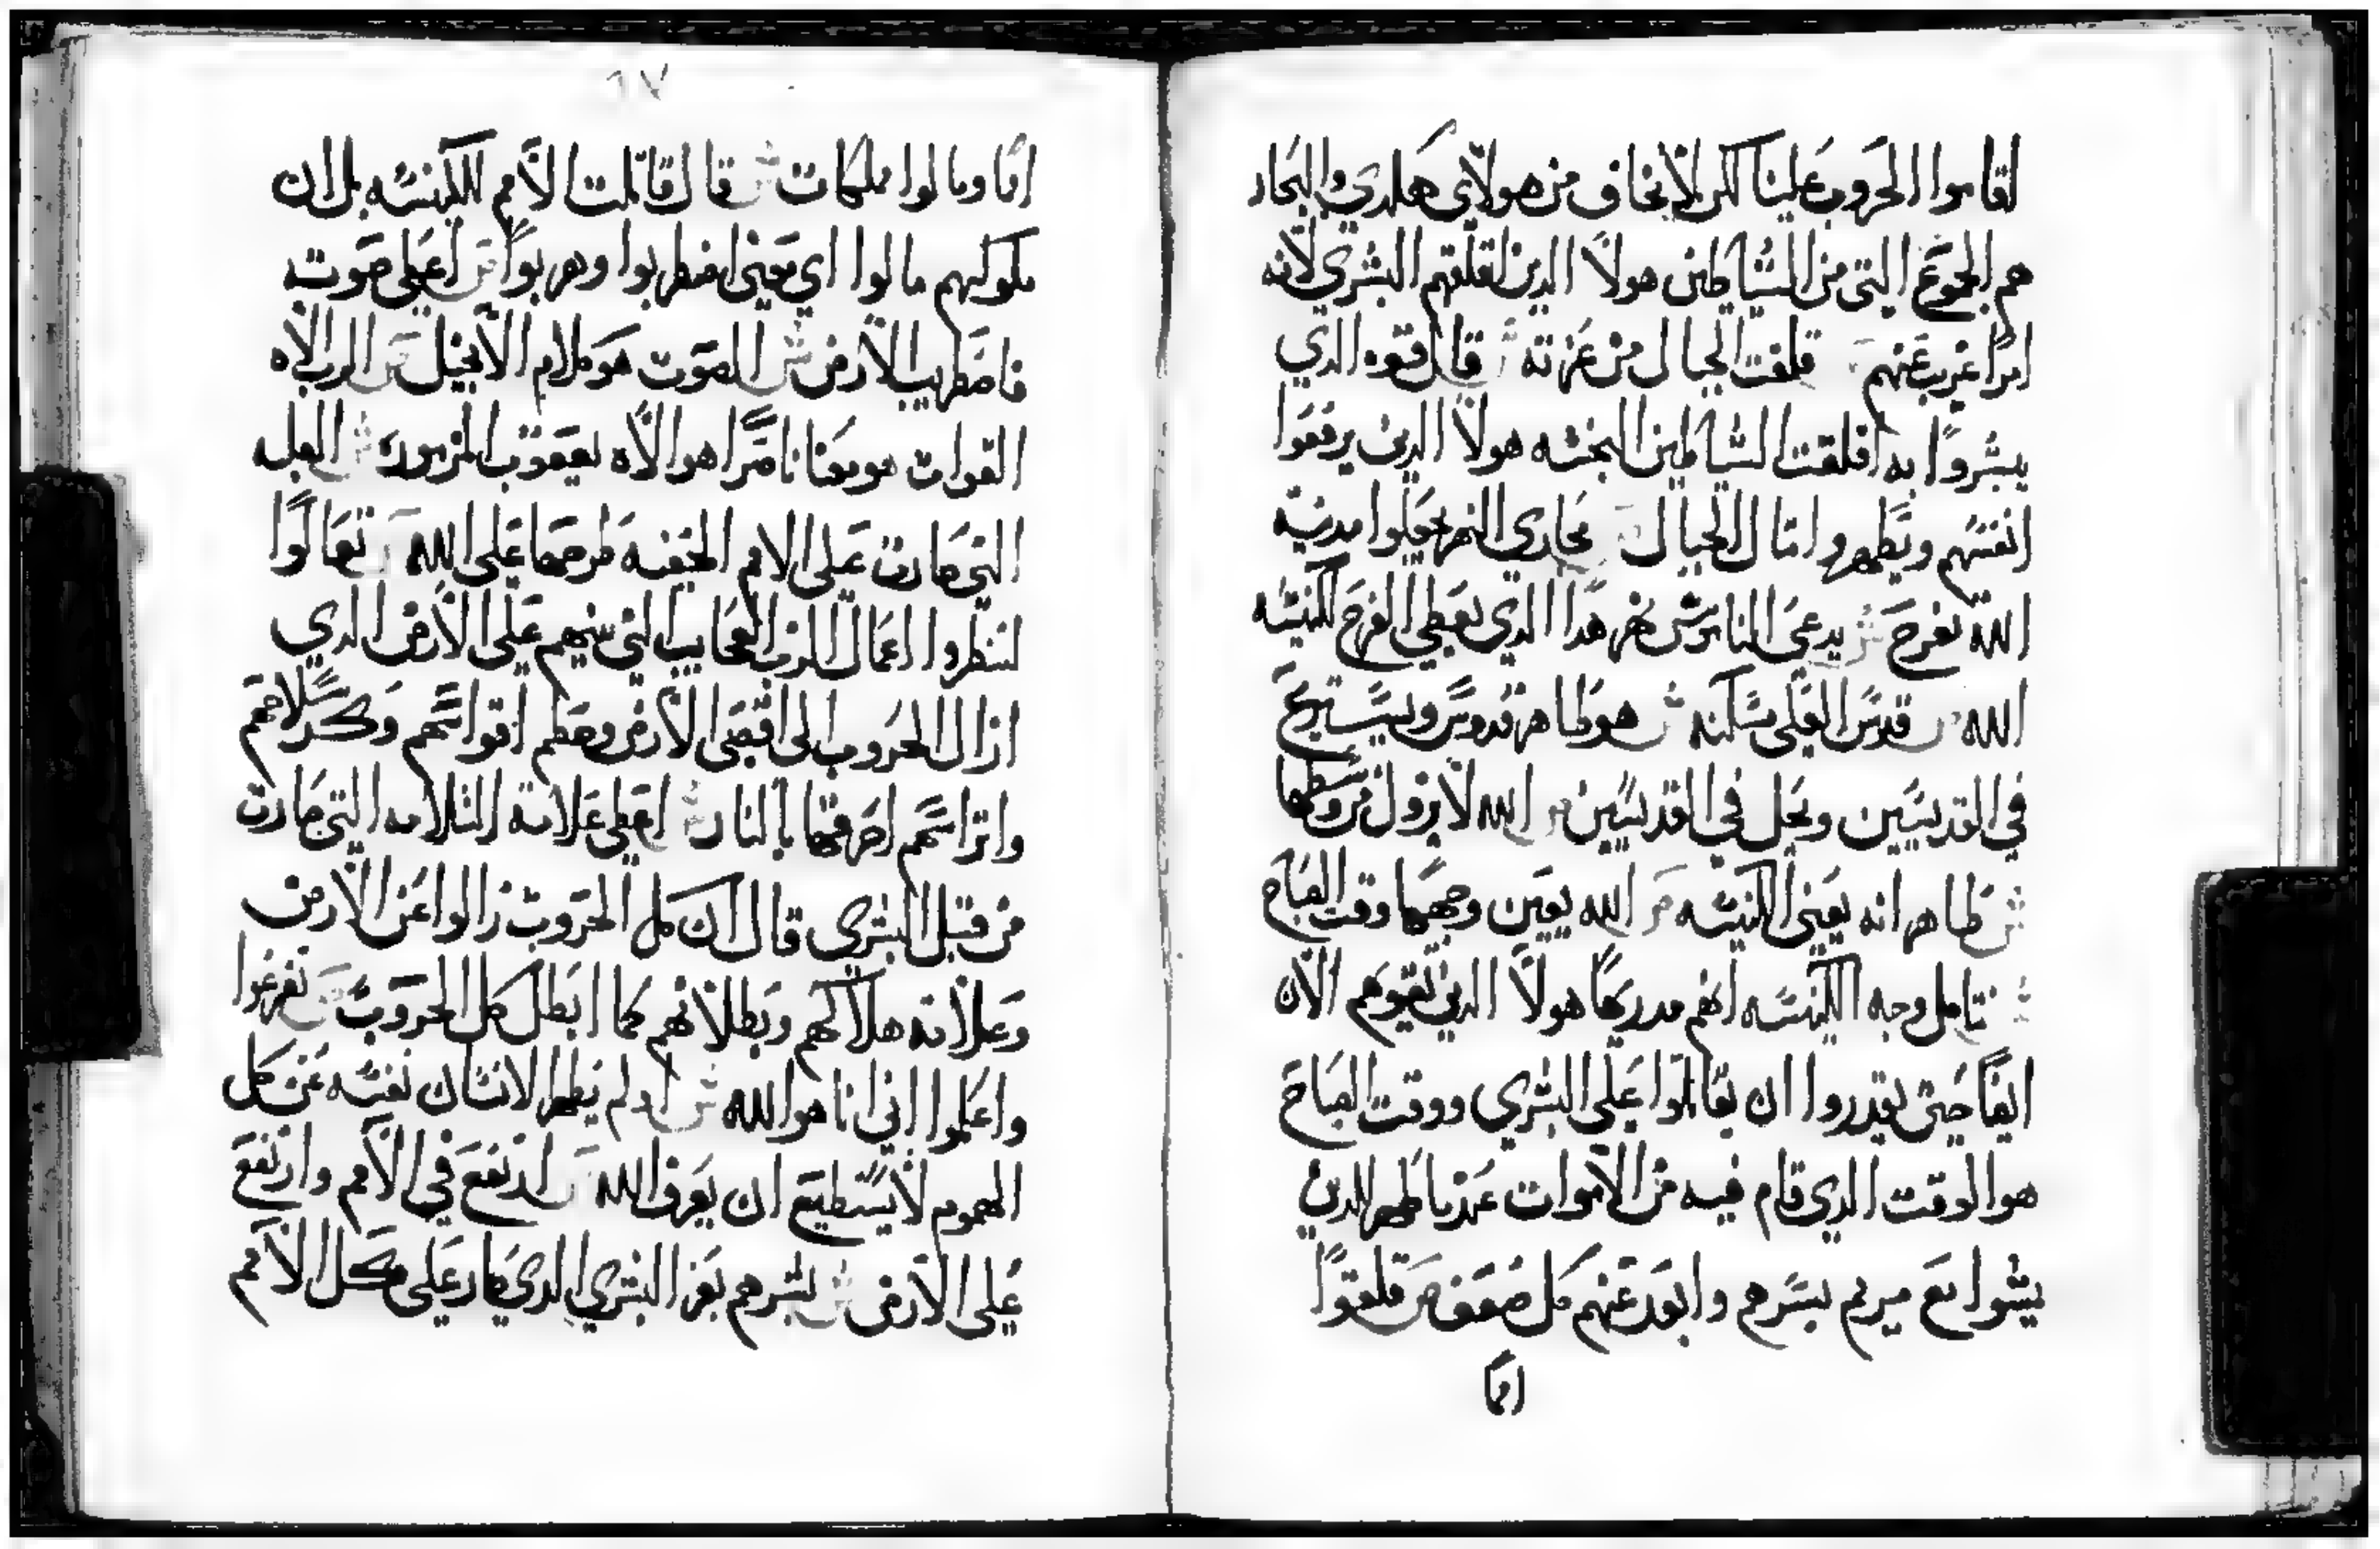 اقاموا الحروب علينا لكن لا نخاف من هولاي هلدي والبحار
هم الجموع التي من الشياطين هولا الدين اقلقهم البشري لانه
امرًا غريب عنهم قلقت الجبال من عزته ش قال قوه الدي
يبشروا به اقلقت الشياطين النجسه هولا الدين يرفعوا
انفسهم ويظهروا امثال الجبال مجاري النهر يجعلوا مدينة
الله تفرح ش يدعى الناس ش نهر هدا الدي يعطي الفرح لكنيسه
الله ص قدس العلي مسكنه ش هو طاهر قدوس ويستريح
في القديسين ويحل في القديسين ص الله لا يزول من وسطها
ش ظاهر انه يعني الكنيسه ص الله يعين وجهها وقت الصباح
ش تتامل وجه الكنيسه انهم مدركها هولا الدين تقيموهم الان
ايضًا حتى يقدروا ان يقاتلوا على البشري ووقت الصباح
هو الوقت الدي قام فيه من الاموات عندما ظهر للدين
يمشوا مع مريم بسرهم وابعد عنهم كل ضعف ص قلقوا
امما
١٧
امما ومالوا مملكات ش قال قاتلت الامم الكنيسه بل ان
ملوكهم مالوا اي يعني اضطربوا وهربوا ص اعطى صوته
فاضطربت الارض ش الصوت هو كلام الانجيل ص الرب الاه
القوات هو معنا ناصرًا هو الاه يعقوب المزمور ش الفعل
التي صارت على الامم الخفيفه طرحها على الله ص تعالوا
لننظروا اعمال الرب العجايب التي سنهم على الارض الدي
ازال الحروب الى اقصى الارض وحطم اقواسهم وكسر سلاحهم
واتراسهم احرقها بالنار ش اعطى علامة السلامه التي صارت
من قبل البشري قال ان كل الحروب زالوا عن الارض
وعلامة هلاكهم وبطلانهم كما ابطل كل الحروب ص تفرغوا
واعلموا اني انا هو الله ش ادلم يطهر الانسان نفسه عن كل
الهموم لا يستطيع ان يعرف الله ص ارتفع في الامم وارتفع
على الارض ش يشرهم بعز البشري الدي صار على كل الامم